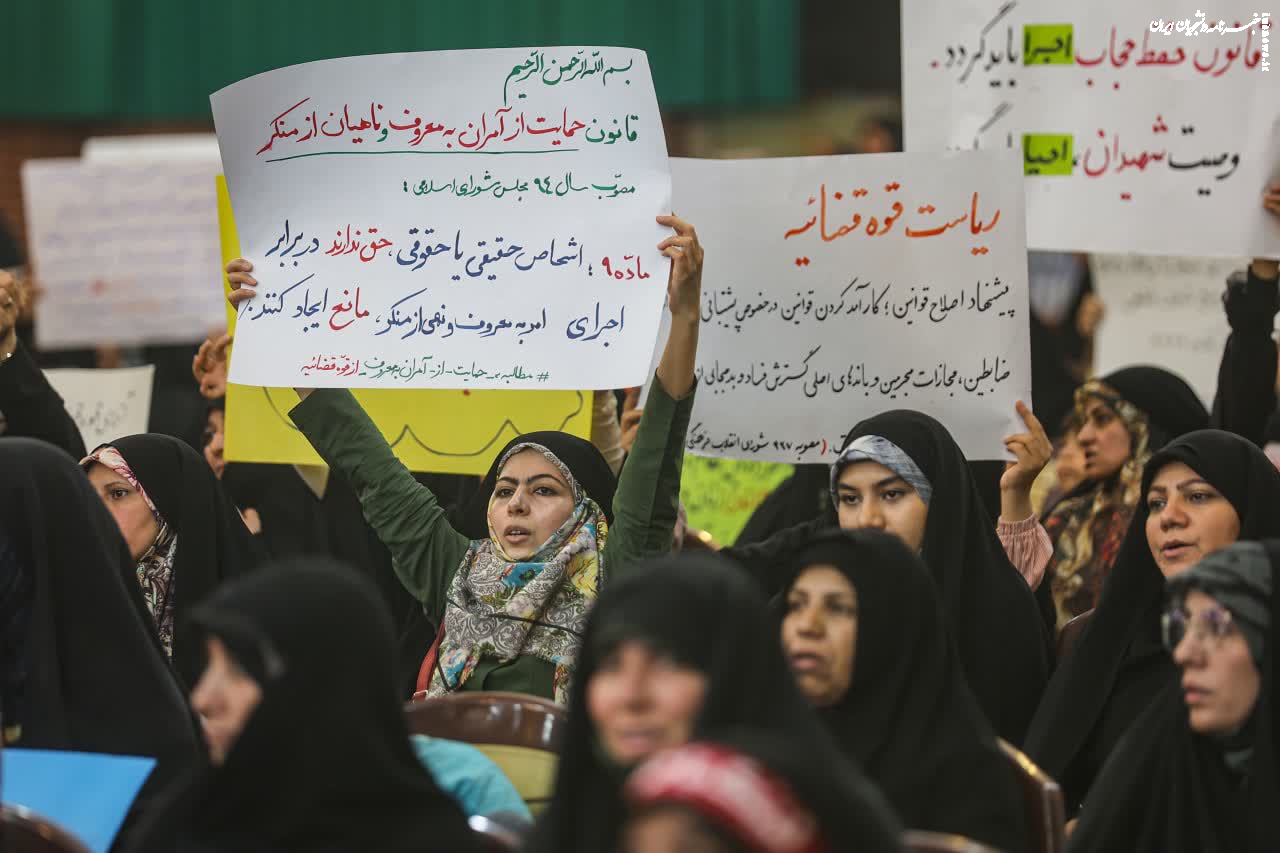 بسم الله الرّحمن الرّحیم
قانون حمایت از آمران به معروف و ناهیان از منکر
مصوّب سال ۹۴ مجلس شورای اسلامی:
مادّه ۹؛ اشخاص حقیقی یا حقوقی، حق ندارند در برابر
اجرای امر به معروف و نهی از منکر، مانع ایجاد کنند.
# مطالبه_حمایت_از_آمران_به‌معروف_از قوّه قضائیه
ریاست قوه قضائیه
پیشنهاد اصلاح قوانین؛ کارآمد کردن قوانین در خصوص پشتیبانی
ضابطین، مجازات مجرمین و باندهای اصلی گسترش فساد و بدحجابی از
(مصوبه ۹۹۷ شورای انقلاب فرهنگی
خبرنامه دانشجویان ایران
قانون حفظ حجاب اجرا باید گردد.
وصیت شهیدان، احیا